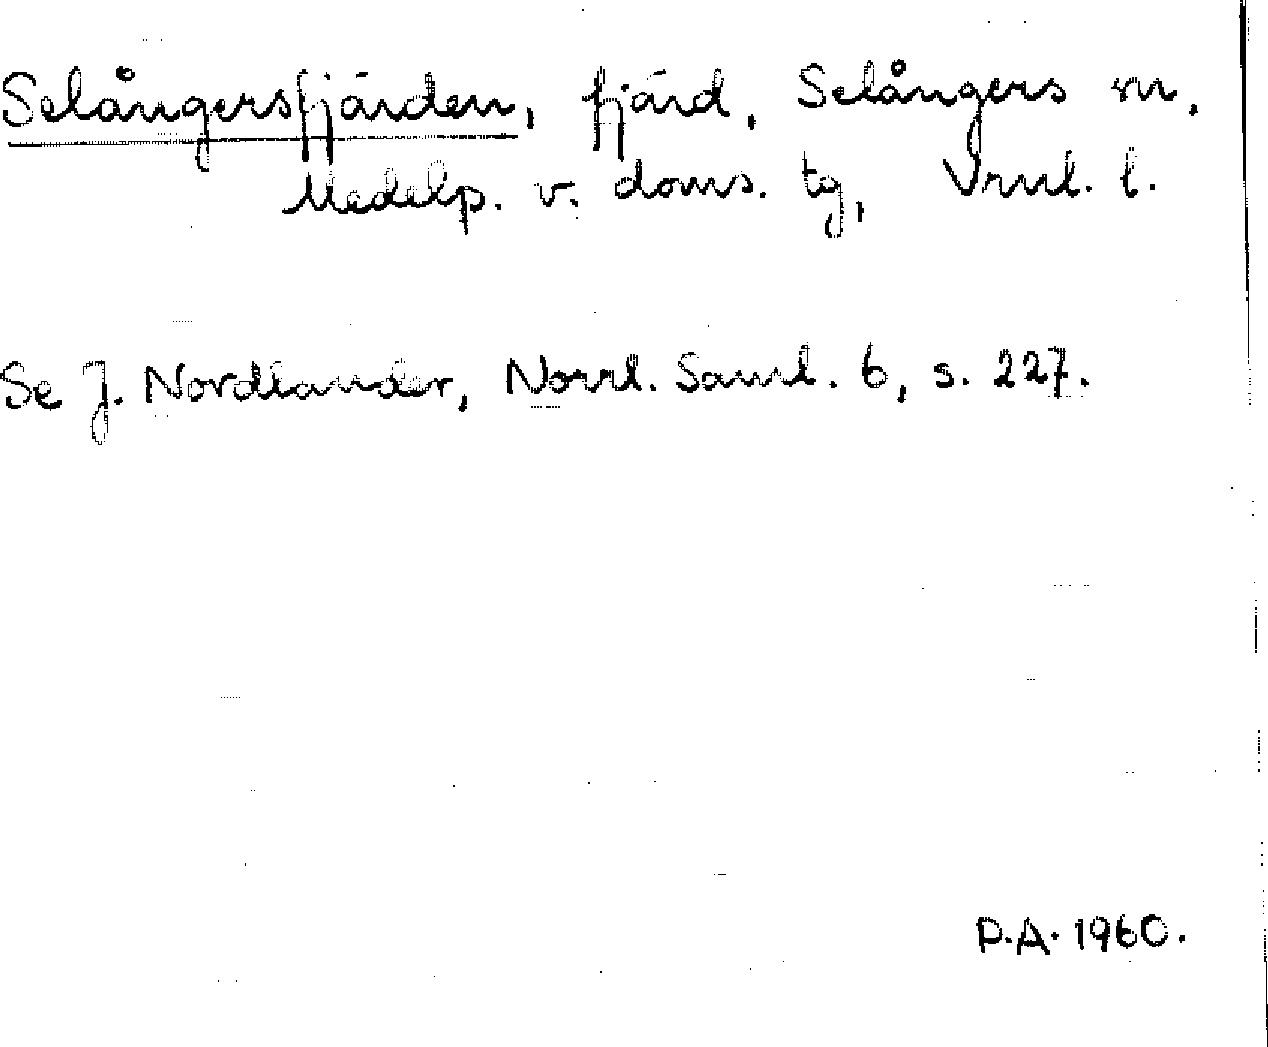 Selångersfjärden, fjärd, Selångers sn,
Medelp. v. doms. tg, Vrnl. l.
Se J. Nordlander, Norrl. Saml. 6, s. 227.
P.A. 1960.